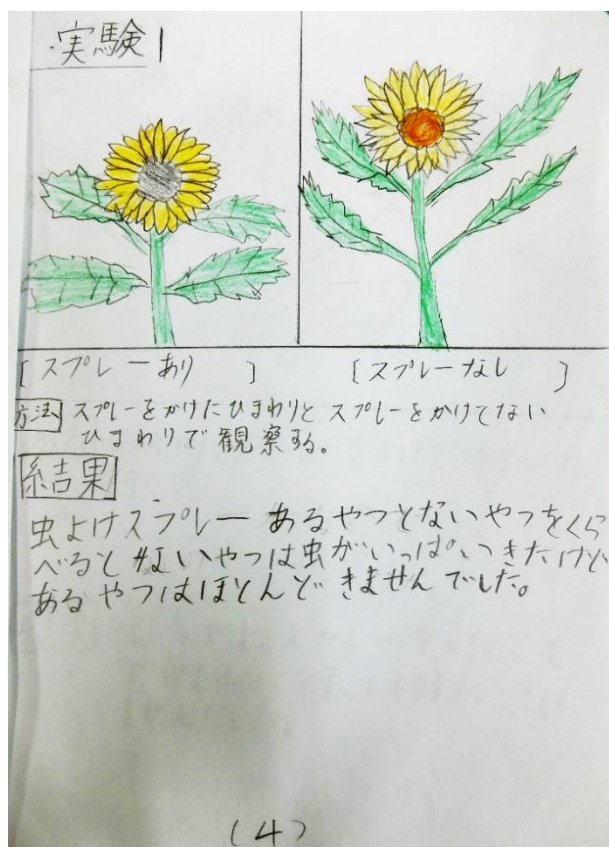 ・実験1
[スプレーあり]
[スプレーなし]
方法 スプレーをかけたひまわりとスプレーをかけてない
ひまわりで観察する。
結果
虫よけスプレーあるやつとないやつをくら
べると ないやつは虫がいっぱいつきたけど
あるやつはほとんどきませんでした。
(4)